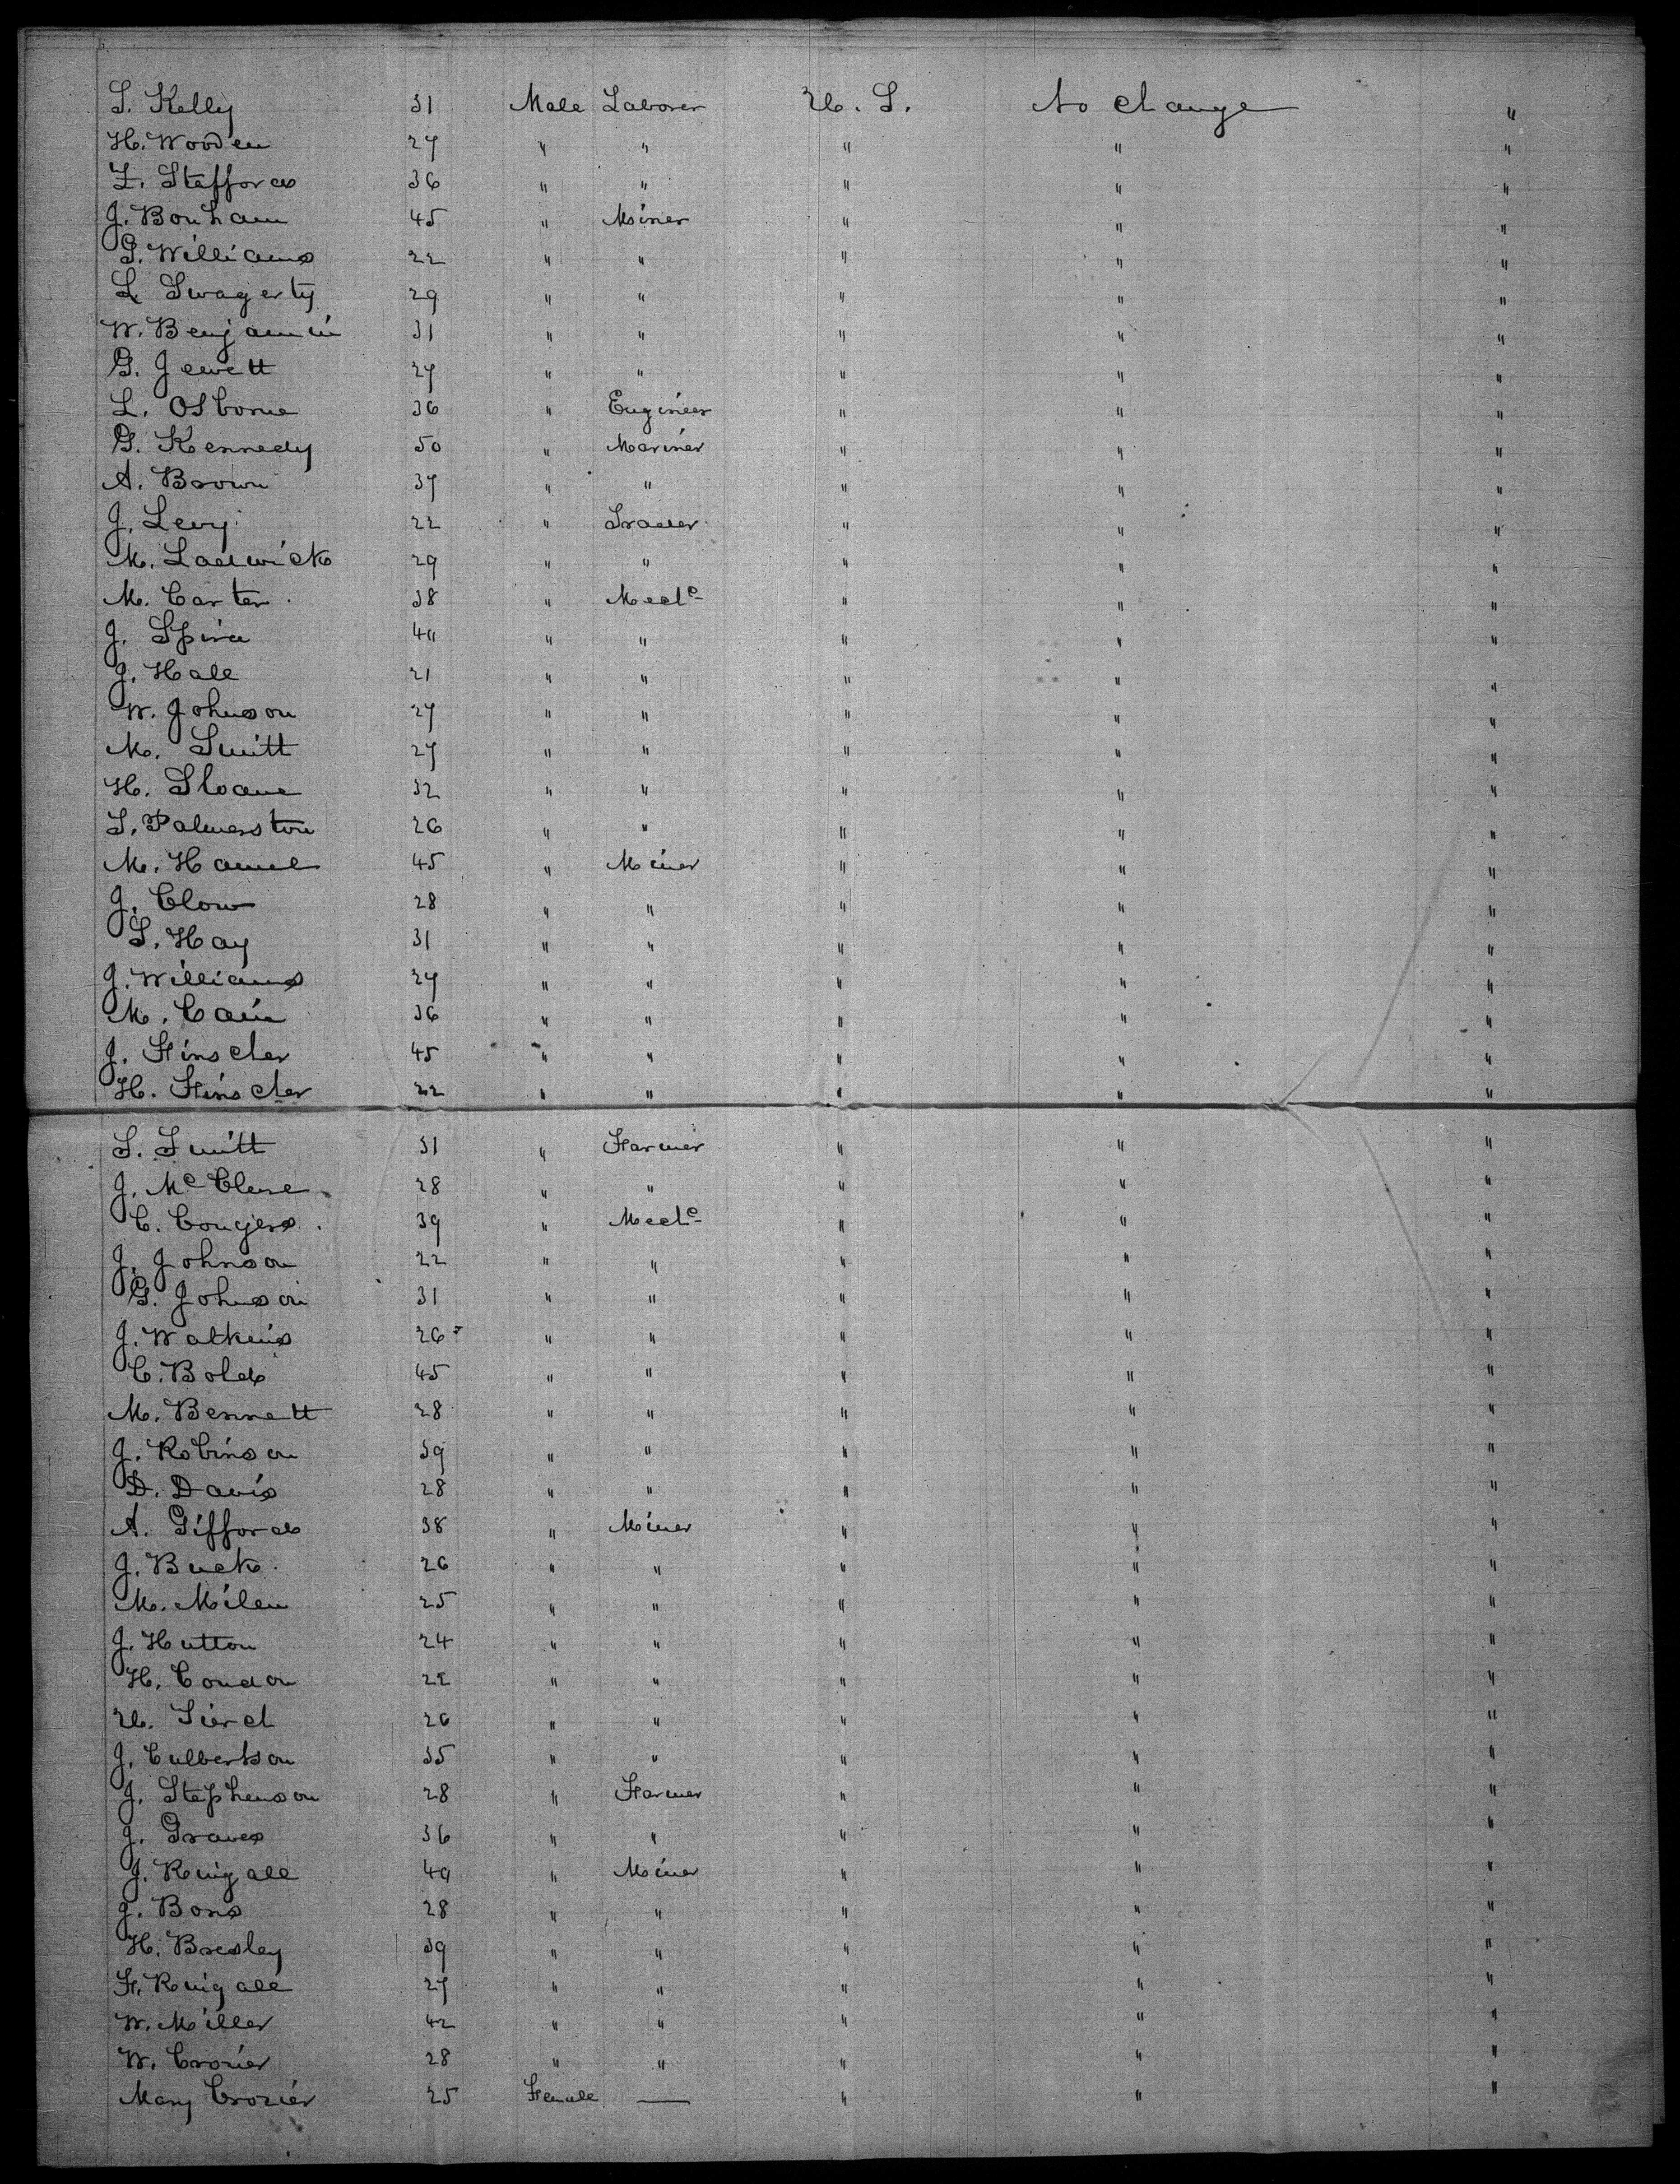 S. Kelly 31 Male Laborer U. S. No change "
H. Wooden 27 " " " " "
Z. Stafford 36 " " " " "
J. Bonham 45 " Miner " " "
G. Williams 22 " " " " "
L. Swagerty 29 " " " " "
W. Benjamin 31 " " " " "
G. Jewett 27 " " " " "
L. Osborne 36 " Engineer " " "
G. Kennedy 50 " Mariner " " "
A. Brown 37 " " " " "
J. Levy 22 " Trader " " "
M. Ladwick 29 " " " " "
M. Carter 38 " Mech^c " " "
J. Spira " " " " "
J. Hall 21 " " " " "
W. Johnson 27 " " " " "
M. Smith 27 " " " " "
H. Sloane 32 " " " " "
S. Palmerston 26 " " " " "
M. Hamel 45 " Miner " " "
J. Clow 28 " " " " "
S. Hay 31 " " " " "
J. Williams 27 " " " " "
M. Cain 36 " " " " "
J. Finscher 45 " " " " "
H. Finscher 22 " " " " "
S. Smith 31 " Farmer " " "
J. McClure 28 " " " " "
C. Congers 39 " Mech^c " " "
J. Johnson 22 " " " " "
G. Johnson 31 " " " " "
J. Watkins 26 " " " " "
C. Bold 45 " " " " "
M. Bennett 28 " " " " "
J. Robinson 39 " " " " "
D. Davis 28 " " " " "
A. Gifford 38 " Miner " " "
J. Buck 26 " " " " "
M. Milen 25 " " " " "
J. Hutton 24 " " " " "
H. Condon 22 " " " " "
U. 26 " " " " "
J. Culbertson 35 " " " " "
J. Stephenson 28 " Farmer " " "
J. Graves 36 " " " " "
J. Ringall " Miner " " "
J. Bons 28 " " " " "
H. Bresley 39 " " " " "
F. Ringall 27 " " " " "
W. Miller 42 " " " " "
W. Crozier 28 " " " " "
Mary Crozier 25 Female — " " "